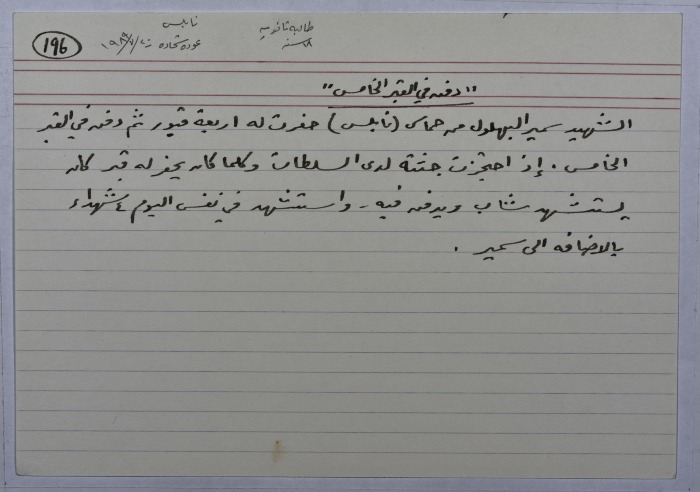 196
نابلس
عوده شحاده ٢٠/٧/١٩٨٩
طالبة ثانوية
١٨ سنة
"دفن في القبر الخامس"
الشهيد سمير البهلول من حماس (نابلس) حفرت له اربعة قبور ثم دفن في القبر
الخامس. إذ احتجزت جثته لدى السلطات وكلما كان يحفر له قبر كان
يستشهد شاب ويدفن فيه - واستشهد في نفس اليوم ٤ شهداء
بالاضافه الى سمير.